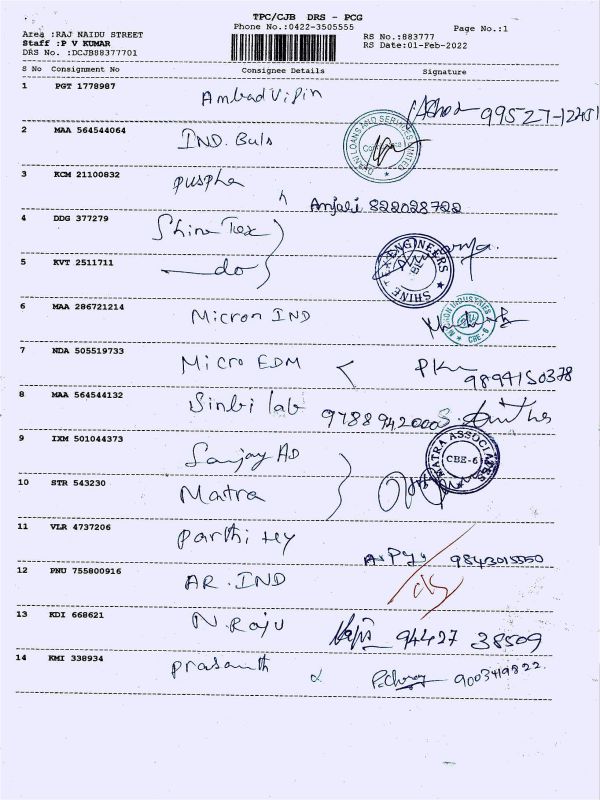 TPC/CJB DRS - PCG
Phone No.:0422-3505555
Page No.:1
Area :RAJ NAIDU STREET
Staff :P V KUMAR
DRS No. :DCJB88377701
RS No.:883777
RS Date:01-Feb-2022
S No Consignment No Consignee Details Signature
1 PGT 1778987 Ambadvipin 99527-12451
2 MAA 564544064 IND. Buls
LOANS AND SERVICES LIMITED
3 KCM 21100832 puspha Anjali 822028722
4 DDG 377279 Shine Tex
SHINE TEX ENGINEERS
5 KVT 2511711 do
6 MAA 286721214 Micron IND
INDUSTRIES CBE-6
7 NDA 505519733 Micro EDM 9894150378
8 MAA 564544132 Sinbi lab 9788942000
9 IXM 501044373 Sanjay AD
MATRA ASSOCIATES CBE-6
10 STR 543230 Matra
11 VLR 4737206 Parthi tey 9843015550
12 PNU 755800916 AR. IND
13 KDI 668621 N. Raju 94427 38509
14 KMI 338934 prasanth 9003419822